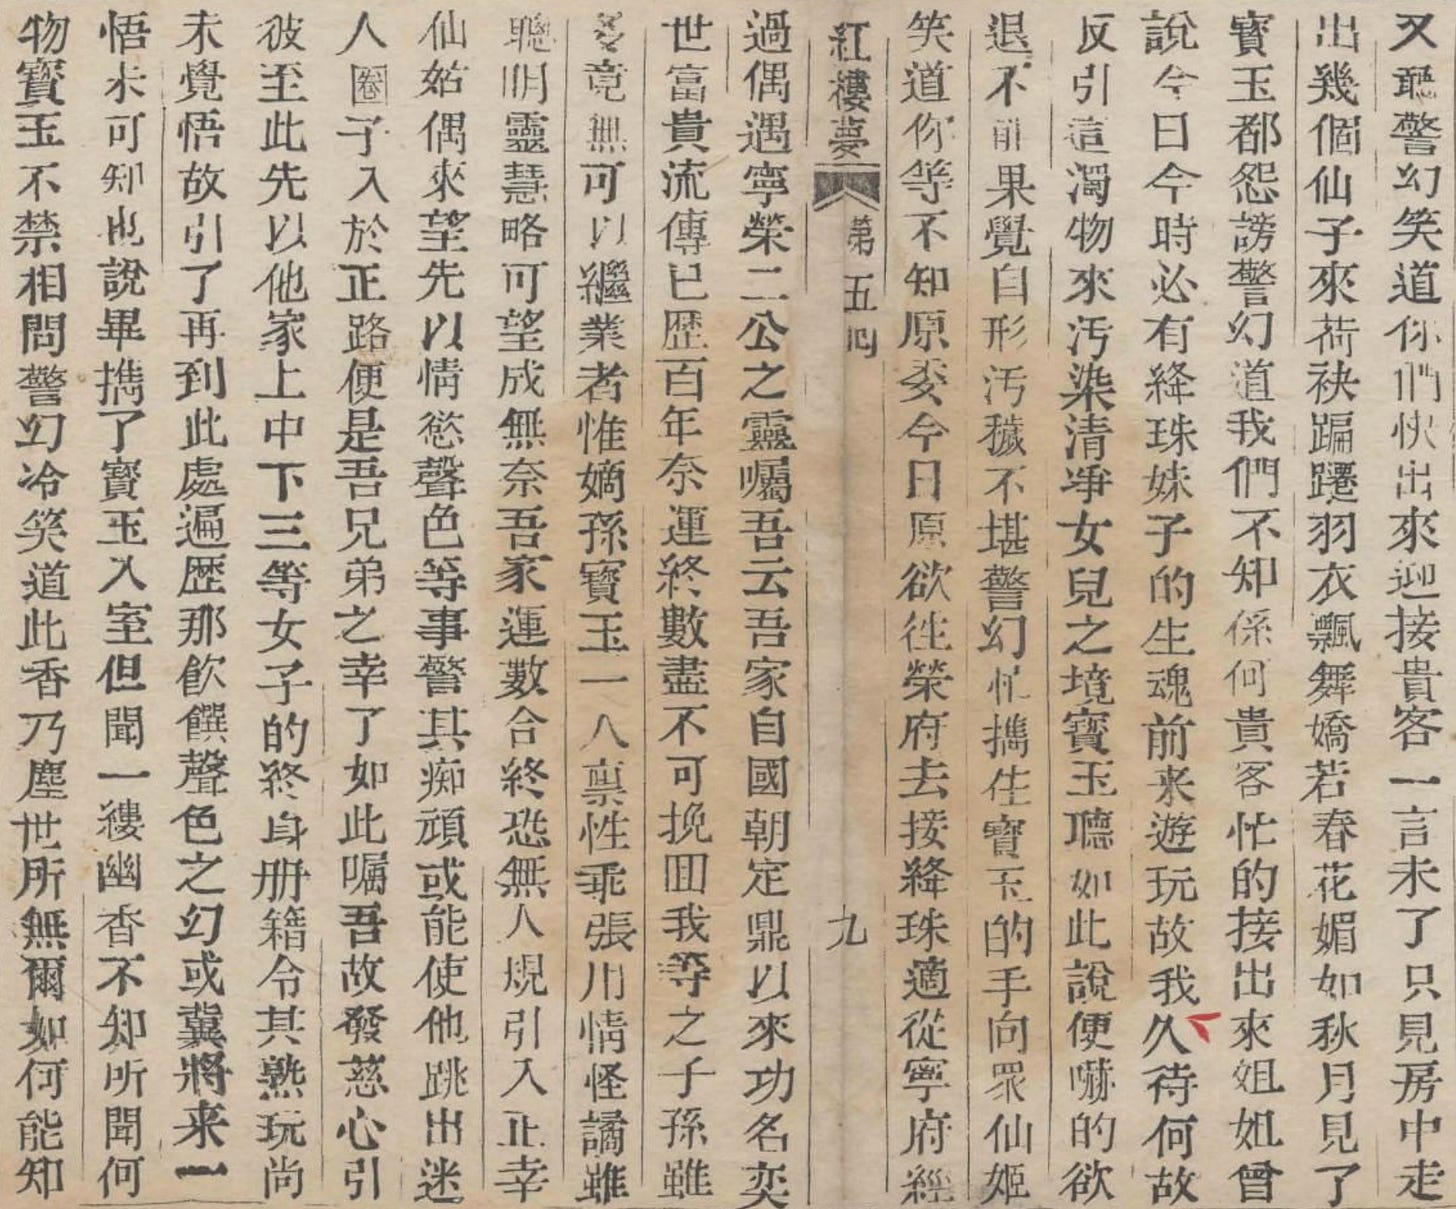 又聽警幻笑道你們快出來迎接貴客一言未了只見房中走
出幾個仙子來荷袂蹁躚羽衣飄舞嬌若春花媚如秋月見了
寳玉都怨謗警幻道我們不知係何貴客忙的接出來姐姐曾
說今日今時必有絳珠妹子的生魂前来遊玩故我久待何故
反引這濁物來汚染清净女兒之境寳玉聽如此說便嚇的欲
退不前果覺自形汚穢不堪警幻忙擕住寳玉的手向眾仙姬
笑道你等不知原委今日原欲往榮府去接絳珠適從寧府經
紅樓夢 第五囘 九
過偶遇寧榮二公之靈囑吾云吾家自國朝定鼎以來功名奕
世富貴流傳已歷百年奈運終數盡不可挽囬我等之子孫雖
多竟無可以繼業者惟嫡孫寳玉一人禀性乖張用情怪譎雖
聰明靈慧略可望成無奈吾家運數合終恐無人規引入正幸
仙姑偶來望先以情慾聲色等事警其痴頑或能使他跳出迷
人圈子入於正路便是吾兄弟之幸了如此囑吾故發慈心引
彼至此先以他家上中下三等女子的終身册籍令其熟玩尚
未覺悟故引了再到此處遍歷那飲饌聲色之幻或冀將来一
悟未可知也說畢擕了寳玉入室但聞一縷幽香不知所聞何
物寳玉不禁相問警幻冷笑道此香乃塵世所無爾如何能知